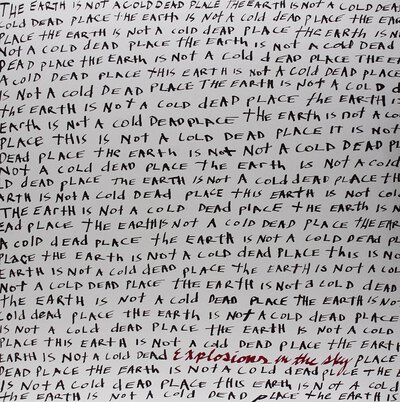 THE EARTH IS NOT A COLD DEAD PLACE THE EARTH IS NOT A COLD DEAD
COLD DEAD PLACE THE EARTH IS NOT A COLD DEAD PLACE THE EAR
PLACE THE EARTH IS NOT A COLD DEAD PLACE THE EARTH IS NOT
NOT A COLD DEAD PLACE THE EARTH IS NOT A COLD DEAD
DEAD PLACE THE EARTH IS NOT A COLD DEAD PLACE THE EA
A COLD DEAD PLACE THIS EARTH IS NOT A COLD DEAD PLACE
IS NOT A COLD DEAD PLACE THE EARTH IS NOT A COLD D
THE EARTH IS NOT A COLD DEAD PLACE THE EARTH I
EARTH IS NOT A COLD DEAD PLACE THE EARTH IS NOT A CO
PLACE THIS IS NOT A COLD DEAD PLACE IT IS NOT
DEAD PLACE THE EARTH IS NOT A COLD DEAD PL
NOT A COLD DEAD PLACE THE EARTH IS NOT A COLD
LD DEAD PLACE THE EARTH IS NOT A COLD DEAD PLACE TH
ARTH IS NOT A COLD DEAD PLACE THIS EARTH IS NOT COL
THE EARTH IS NOT A COLD DEAD PLACE THE EARTH IS N
EAD PLACE THE EARTH IS NOT A COLD DEAD PLACE THE EAR
A COLD DEAD PLACE THE EARTH IS NOT A COLD DEAD PL
PLACE THE EARTH IS NOT A COLD DEAD PLACE THIS IS NO
EARTH IS NOT A COLD DEAD PLACE THE EARTH IS NOT A COL
NOT A COLD DEAD PLACE THE EARTH IS NOT A COLD DEAD
THE EARTH IS NOT A COLD DEAD PLACE THE EARTH
COLD DEAD PLACE THIS EARTH IS NOT A COLD DEAD PLACE
IS NOT A COLD DEAD PLACE THE EARTH IS NOT A COLD
PLACE THIS EARTH IS NOT A COLD DEAD PLACE THE EAR
EARTH IS NOT A COLD DEAD Explosions in the sky PLACE
DEAD PLACE THE EARTH IS NOT A COLD DEAD PLACE THE E
IS NOT A COLD DEAD PLACE THIS EARTH IS NOT A CO
THE EARTH IS NOT A COLD DEAD PLACE THE EARTH IS